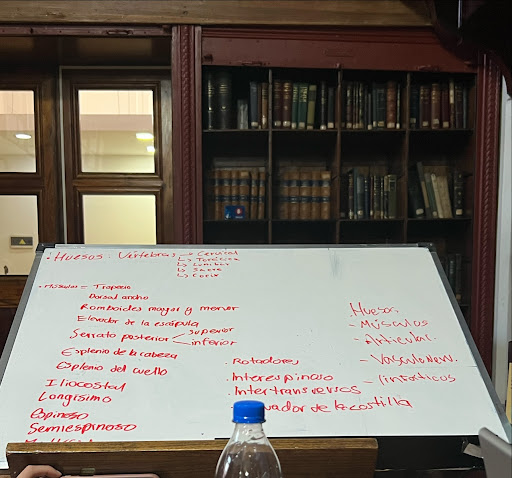 • Huesos: Vertebras → Cervical
↳ Torácica
↳ Lumbar
↳ Sacra
↳ Coxis
• Músculos = Trapecio
Dorsal ancho
Romboides mayor y menor
Elevador de la escápula
Serrato posterior < superior
inferior
Esplenio de la cabeza
Esplenio del cuello
Iliocostal
Longísimo
Espinoso
Semiespinoso
• Rotadores
• Interespinoso
• Intertransversos
vador de la costilla
Huesos
- Músculos
- Articular
- Vasculo
- linfáticos